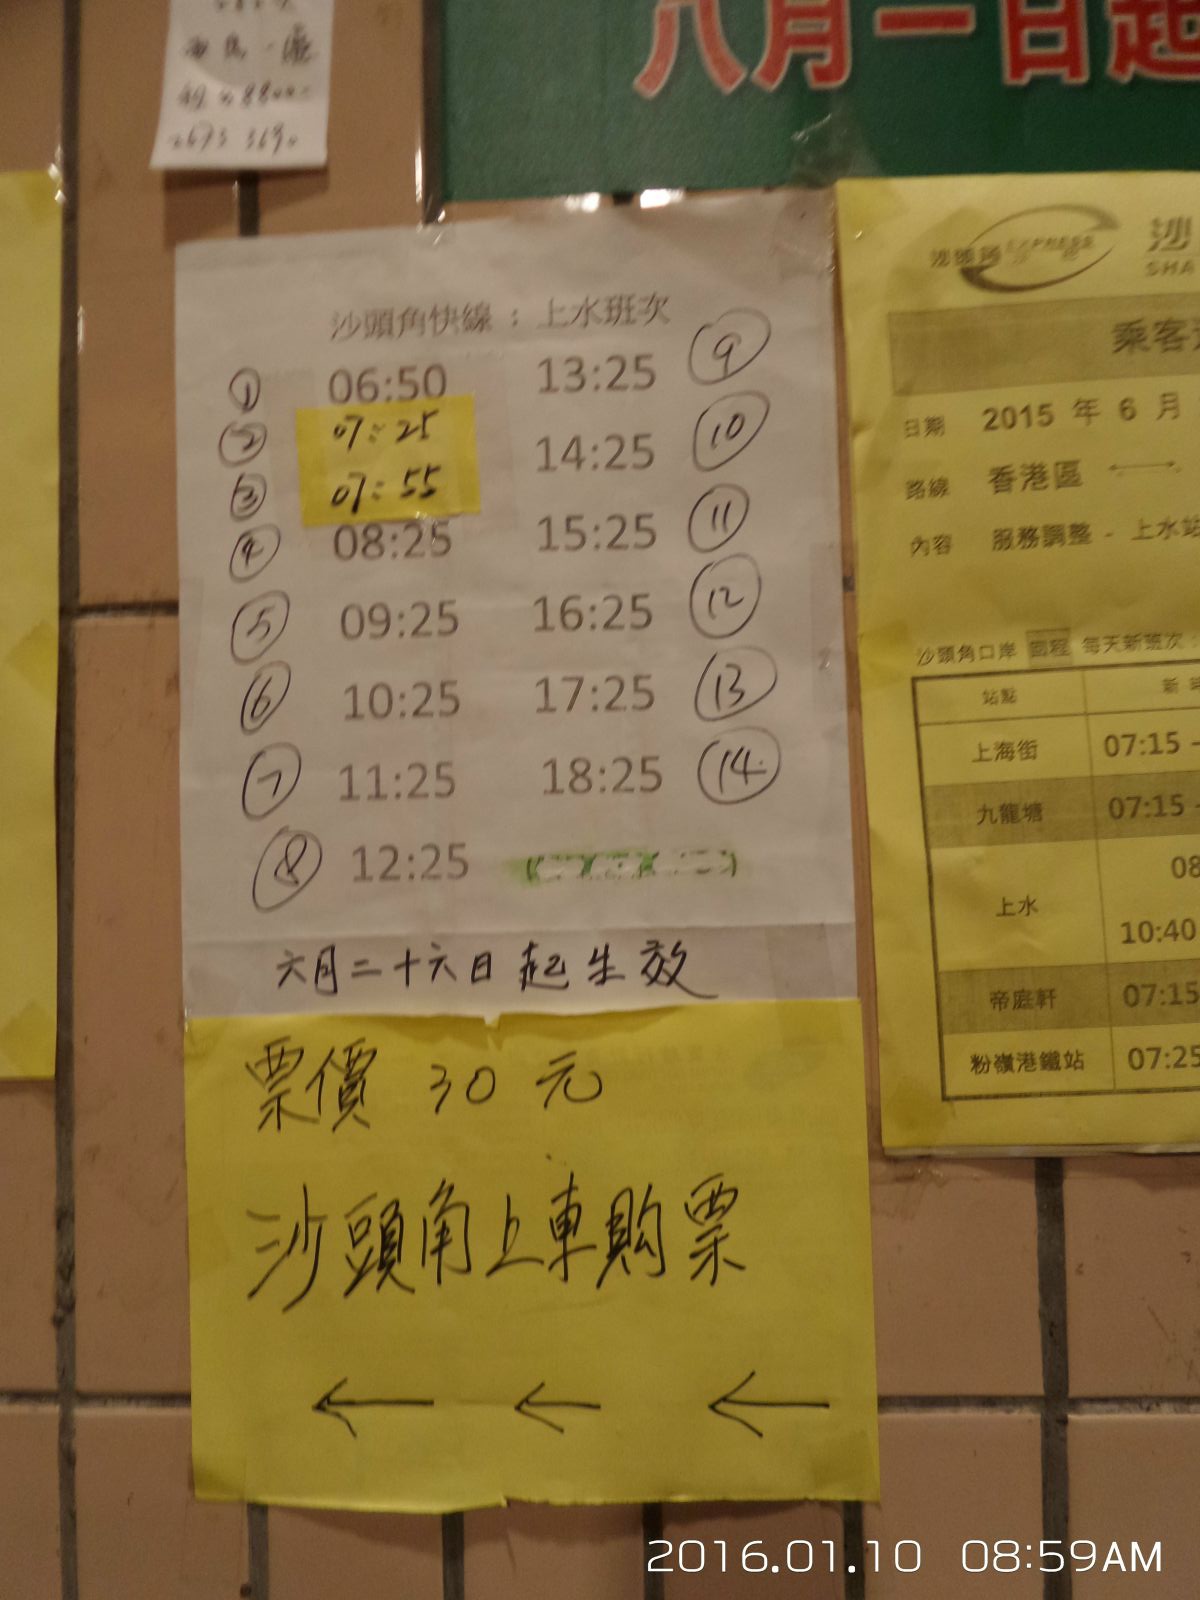 八月一日起
2673 3690
沙頭角快線：上水班次
① 06:50 13:25 ⑨
② 07:25 14:25 ⑩
③ 07:55
④ 08:25 15:25 ⑪
⑤ 09:25 16:25 ⑫
⑥ 10:25 17:25 ⑬
⑦ 11:25 18:25 ⑭
⑧ 12:25
六月二十六日起生效
票價 30 元
沙頭角上車购票
← ← ←
沙頭角 EXPRESS
沙
SHA
乘客
日期 2015 年 6 月
路線 香港區 ↔
內容 服務調整 - 上水站
沙頭角口岸 回程 每天新班次
站點 新
上海街 07:15 -
九龍塘 07:15 -
上水 08
10:40
帝庭軒 07:15
粉嶺港鐵站 07:25
2016.01.10 08:59AM